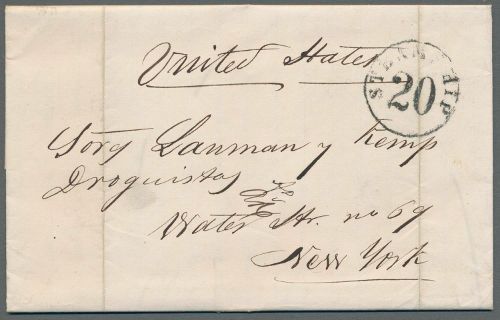 United States
STEAMSHIP
20
Sörs Lanman y Kemp
Droguistas
Water Str. no 69
New York